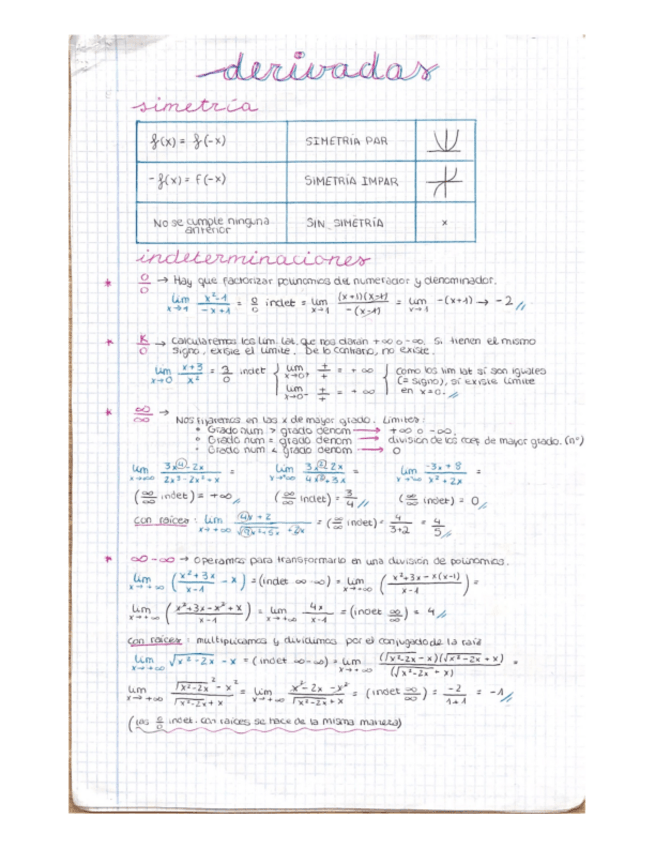 derivadas
simetría
f(x) = f(-x) SIMETRÍA PAR
-f(x) = f(-x) SIMETRÍA IMPAR
No se cumple ninguna anterior SIN SIMETRÍA x
indeterminaciones
* 0/0 → Hay que factorizar polinomios del numerador y denominador.
lim x→1 x²-1/-x+1 = 0/0 indet = lim x→1 (x+1)(x-1)/-(x-1) = lim x→1 -(x+1) → -2
* K/0 → Calcularemos los lim. lat. que nos darán +∞ o -∞. Si tienen el mismo
signo, existe el límite. De lo contrario, no existe.
lim x→0 x+3/x² = 3/0 indet { lim x→0+ +/+ = +∞ { Como los lim lat sí son iguales
lim x→0- +/+ = +∞ (= signo), sí existe límite
en x=0.
* ∞/∞ →
Nos fijaremos en las x de mayor grado. Límites:
• Grado num > grado denom → +∞ o -∞.
• Grado num = grado denom → división de los coef de mayor grado. (nº)
• Grado num < grado denom → 0
lim x→∞ 3x④-2x/2x³-2x²+x = lim x→∞ 3x② 2x/4x②+3x = lim x→∞ -3x+8/x²+2x =
(∞/∞ indet) = +∞ (∞/∞ indet) = 3/4 (∞/∞ indet) = 0
con raíces: lim x→+∞ 4x+2/√9x²+5x +2x = (∞/∞ indet) = 4/3+2 = 4/5
* ∞-∞ → Operamos para transformarlo en una división de polinomios.
lim x→+∞ (x²+3x/x-1 - x) = (indet ∞-∞) = lim x→+∞ (x²+3x-x(x-1)/x-1) =
lim x→+∞ (x²+3x-x²+x/x-1) = lim x→+∞ 4x/x-1 = (indet ∞/∞) = 4
con raíces: multiplicamos y dividimos por el conjugado de la raíz
lim x→+∞ √x²-2x - x = (indet ∞-∞) = lim x→+∞ (√x²-2x - x)(√x²-2x + x)/(√x²-2x + x) =
lim x→+∞ √x²-2x² - x²/√x²-2x + x = lim x→+∞ x²-2x-x²/√x²-2x + x = (indet ∞/∞) = -2/1+1 = -1
(las 0/0 indet. con raíces se hace de la misma manera)